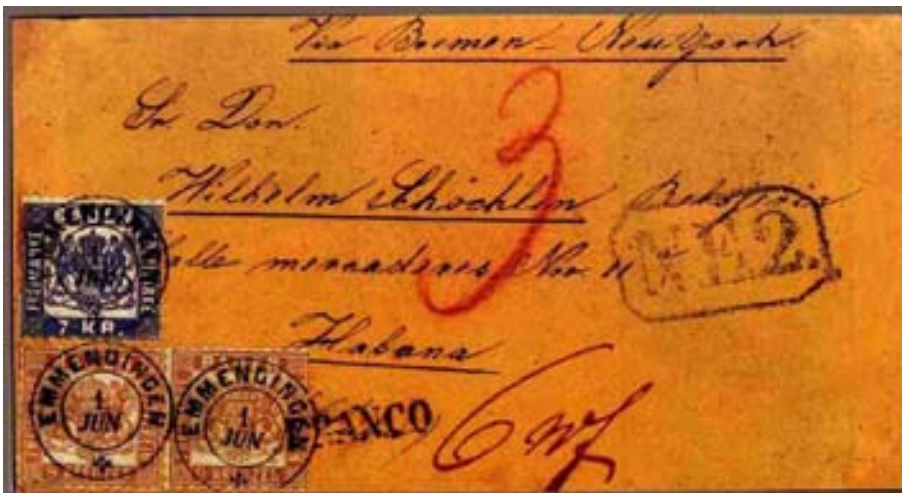 Via Bremen - New York.
Sr. Don.
Wilhelm Schöchlin
3
NE2
Calle mercaderes Nro. 11
Habana
7 KR.
EMMENDINGEN
1
JUN
EMMENDINGEN
1
JUN
FRANCO
6 wf